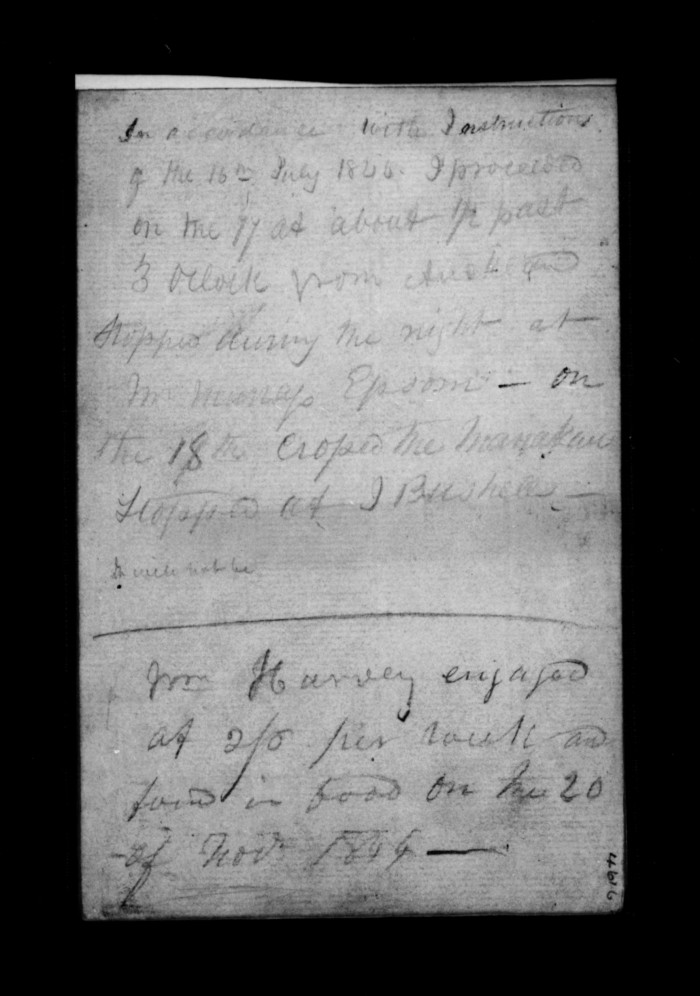 In accordance with Instructions
of the 16th July 1846. I proceeded
on the 17 at about 1/2 past
3 Oclock from Auckland
Stopped during the night at
Mr Epsom — on
the 18th Crossed the Manakau
Stopped at I Bushells —
It will not be
Wm Harvey engaged
at 2/6 per week and
found in food on the 20
of Novr 1846 —